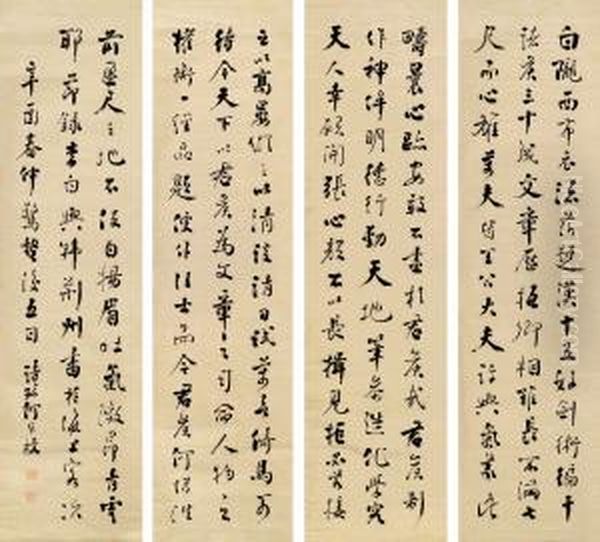 白隴西布衣流落楚漢十五好劍術徧干
諸侯三十成文章歷抵卿相雖長不滿七
尺而心雄萬夫皆王公大夫許與氣義此
疇曩心跡安敢不盡於君侯哉君侯制
作神侔明德行動天地筆參造化學究
天人幸願開張心顏不以長揖見拒必若接
之以高晏縱之以清談請日試萬言倚馬可
待今天下以君侯為文章之司命人物之
權衡一經品題便作佳士而今君侯何惜階
前盈尺之地不使白揚眉吐氣激昂青雲
耶節錄李白與韓荊州書於滬上客次
辛酉春仲驚蟄後五日詩孫何維樸